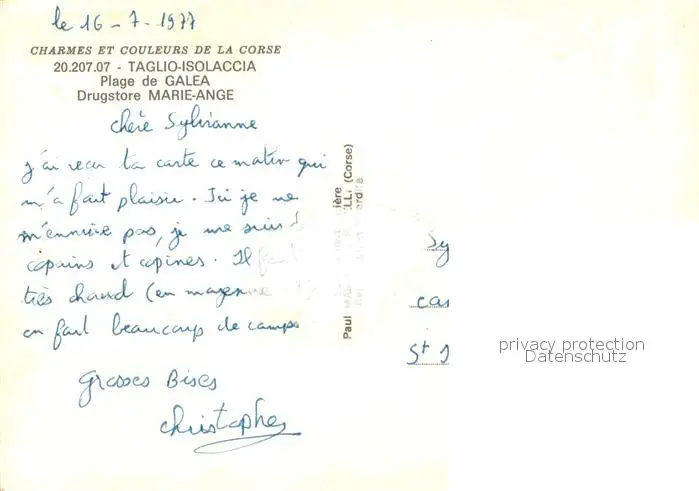 le 16 - 7 - 1977
CHARMES ET COULEURS DE LA CORSE
20.207.07 - TAGLIO-ISOLACCIA
Plage de GALEA
Drugstore MARIE-ANGE
chère Sylvianne
j'ai recu ta carte ce matin qui
m'a fait plaisir. Ici je ne
m'ennuie pas, je me suis
copains et copines. Il fait
très chaud (en moyenne
on fait beaucoup de camps
grosses Bises
christophe
Paul
(Corse)
Sy
cas
St J
privacy protection
Datenschutz